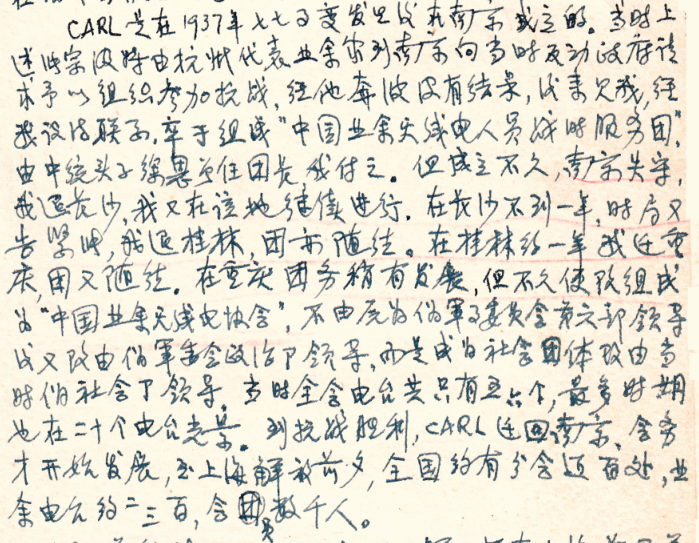 CARL是在1937年七七事变发生后我在南京成立的。当时上
述时宗波特由杭州代表业余家到南京向当时反动政府请
求予以组织参加抗战, 经他奔波没有结果, 后来见我, 经
我设法联系, 卒于组成“中国业余无线电人员战时服务团”,
由中统头子徐恩曾任团长我付之。但成立不久, 南京失守,
我退长沙, 我又在该地继续进行。在长沙不到一年, 时局又
告紧时, 我退桂林, 团亦随往。在桂林约一年我迁重
庆, 团又随往。在重庆团务稍有发展, 但不久便改组成
为“中国业余无线电协会”, 不由反为伪军事委员会第六部领导
后又改由伪军委会政治了领导, 而是成为社会团体改由当
时伪社会了领导。当时全会电台共只有五六个, 最多时期
也在二十个电台光景。到抗战胜利, CARL迁回南京, 会务
才开始发展, 至上海解放前夕, 全国约有分会近百处, 业
余电台约二三百, 会员数千人。